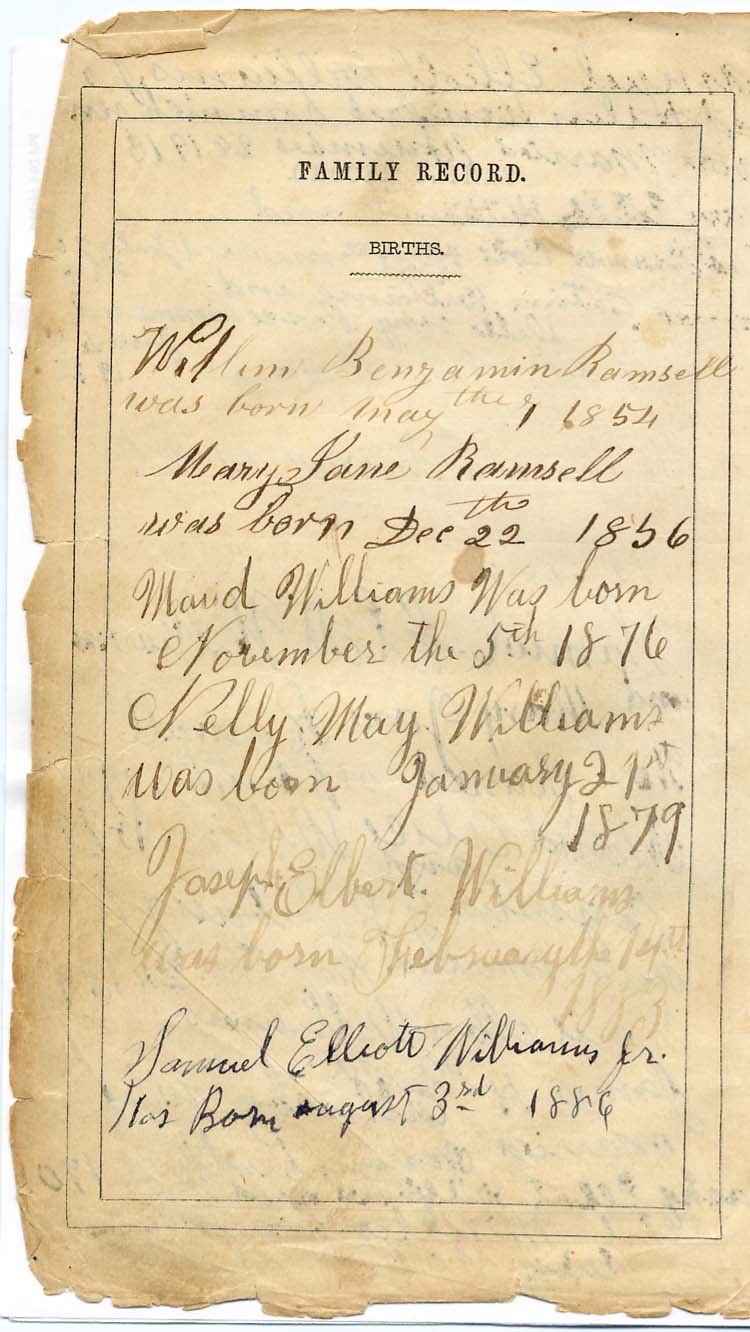 FAMILY RECORD.
BIRTHS.
Willim Benjamin Ramsell
was born may the 1 1854
Mary Jane Ramsell
was born Dec 22th 1856
Maud Williams Was born
November the 5th 1876
Nelly May Williams
was born January 21st
1879
Joseph Elbert. Williams
was born February the 14th
1883
Samuel Elliott Williams Jr.
Was Born august 3rd 1886